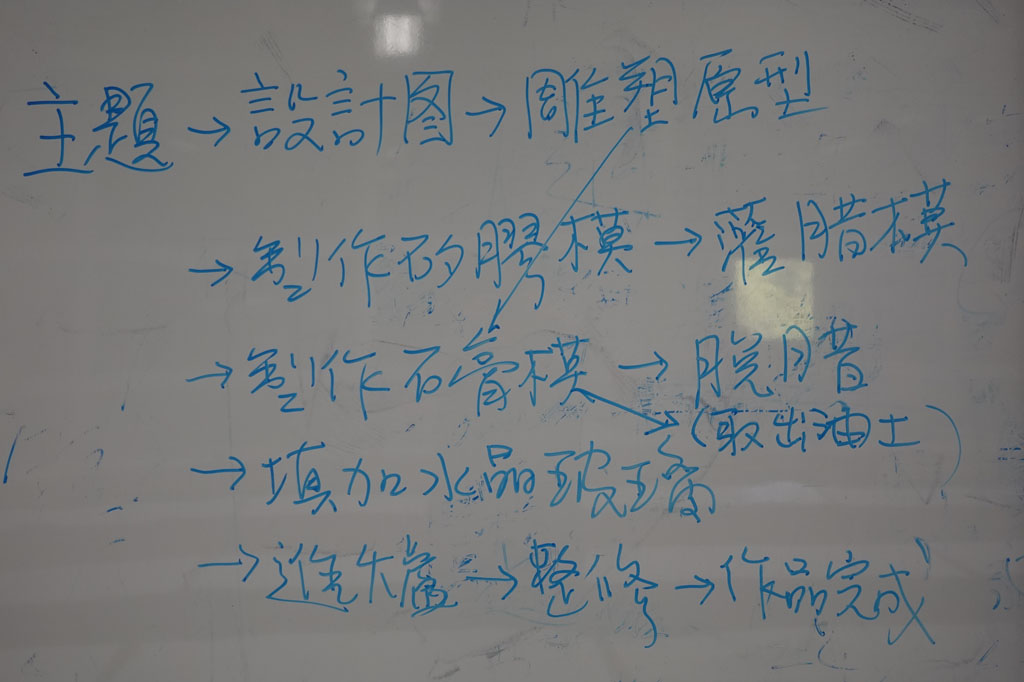 主題→設計图→雕塑原型
→製作矽膠模→蠟腊模
→製作石膏模→脫腊
(取出油土)
→填加水晶玻璃
→進爐→整修→作品完成